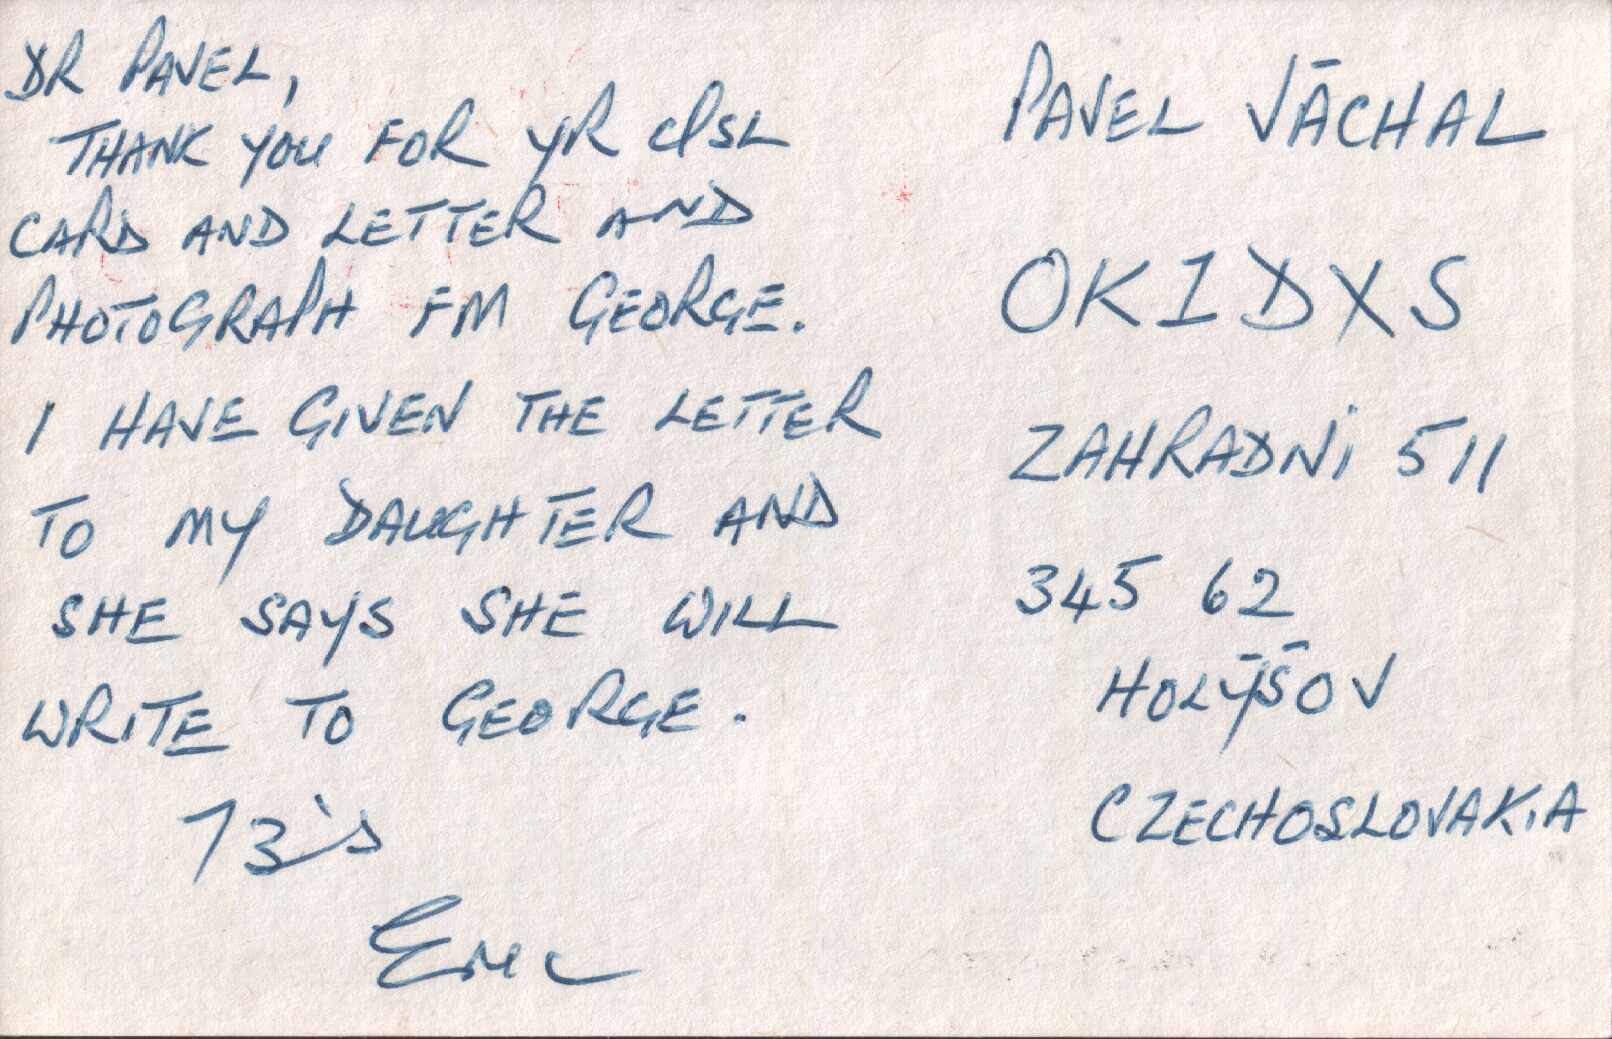 DR PAVEL,
THANK YOU FOR YR QSL
CARD AND LETTER AND
PHOTOGRAPH FM GEORGE.
I HAVE GIVEN THE LETTER
TO MY DAUGHTER AND
SHE SAYS SHE WILL
WRITE TO GEORGE.
73's
PAVEL VÁCHAL
OK1DXS
ZAHRADNI 511
345 62
HOLÝŠOV
CZECHOSLOVAKIA